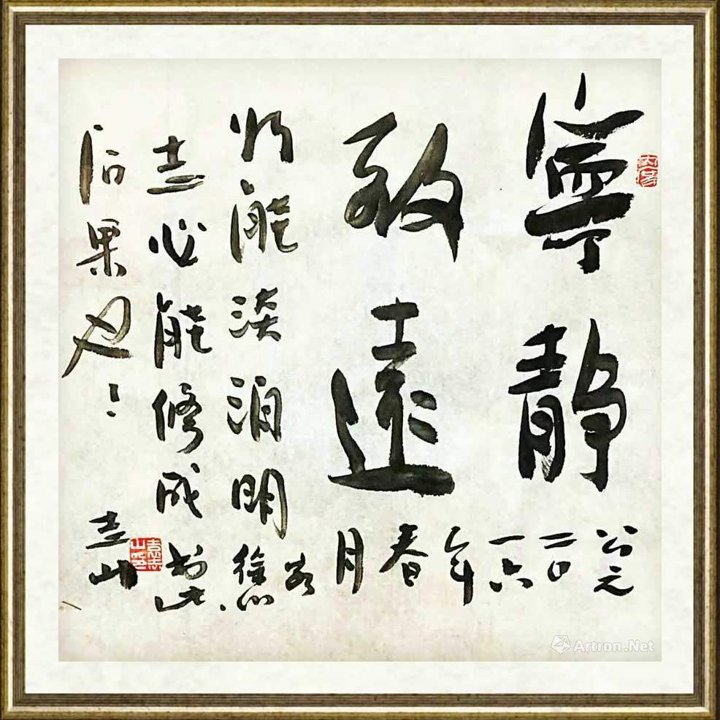 寧靜
致遠
公元二〇一六年春月
能淡泊明
志必能修成
果也
志山
Artron.Net